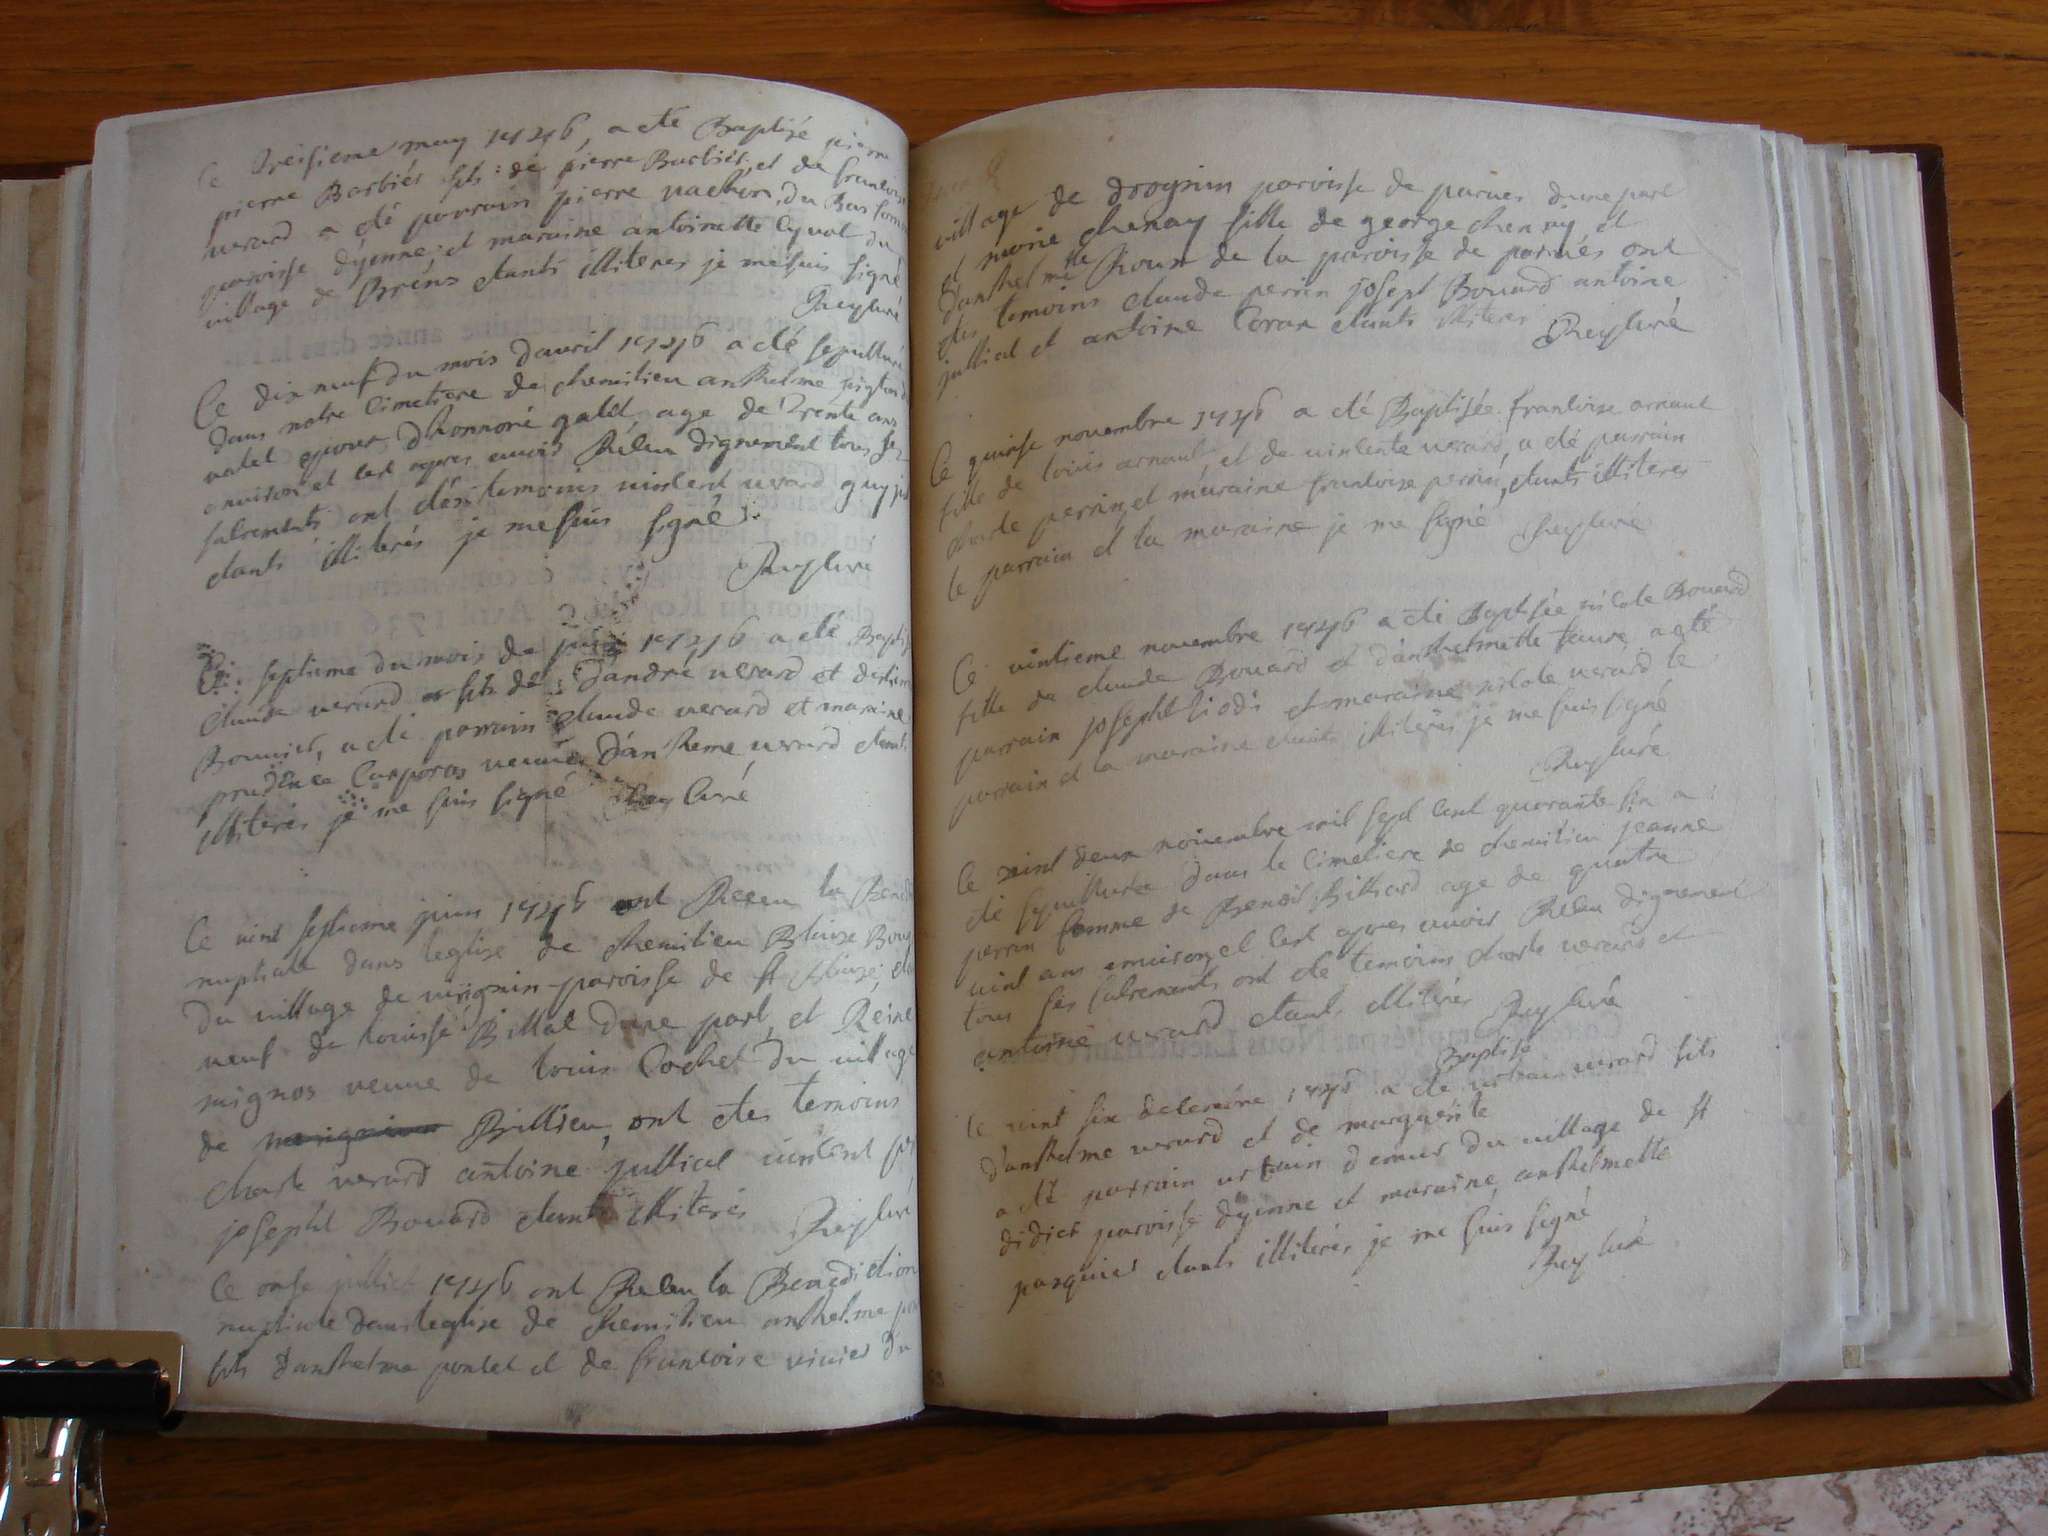 Ce treisieme may 1746, a été Baptisé pierre
pierre Barbiér fils: de pierre Barbiér, et de francoise
verard a été parrain pierre vachon, du Bas
paroisse dyenne, et maraine antoinette du
village de Bréns étants illiteres je me suis signé
Rey Curé
Ce dix neuf du mois davril 1746 a été sepulturé
dans notre Cimetiere de chemilieu anthelme
valet epoux dhonnoré galet, age de Trente ans
anuiron et cest apres avoir Receu dignement tous ses
sacrements ont étés temoins vincent verard guy
étants illiterés je me suis signé
Rey Curé
Ce septieme du mois de juin 1746 a été Baptisé
Claude verard fils de D'andré verard et
Bonnier, a été parrain Claude verard et maraine
prudence veuve D'anthelme verard étants
illiterés je me suis signé Rey Curé
Ce vint septieme juin 1746 ont Receu la
nuptiale dans leglise de chemilieu Blaise
du village de virignin paroisse de st Blaise,
veuf de Louise Billat dune part, et Reine
mignos veuve de Louis Cochet du village
de Billieu, ont étes temoins
charle verard antoine jullial vincent
joseph Bouard étants illiterés Rey Curé
Ce onse julliet 1746 ont Receu la Benediction
nuptiale dans leglise de chemilieu anthelme
fils danthelme pontet et de francoise vivier du
village de drognin paroisse de parves dune part
et marie chenay fille de george chenay, et
danthelmette Roux de la paroisse de parvés ont
étés temoins claude perrin joseph Bouard antoine
jullial et antoine Coran étants illiteres
Rey Curé
Ce quinse novembre 1746 a été Baptisée francoise arnaut
fille de louis arnaut, et de vincente verard, a été parrain
charle perrin, et maraine francoise perrin, étants illiteres
le parrain et la maraine je me signé Rey Curé
Ce vintieme novembre 1746 a été Baptisée nicole Bouard
fille de claude Bouard et danthelmette a été
parrain joseph et maraine nicole verard le
parrain et la maraine étants illiterés je me suis signé
Rey Curé
Ce vint deux novembre mil sept cent quarante six a
été sepulturée dans le Cimetiere de chemilieu jeanne
perrin femme de Benoit Billiard age de quatre
vint ans anuiron, et cest apres avoir Receu dignement
tous ses sacrements ont été temoins charle verard et
antoine verard étants illiterés Rey Curé
Baptisé
Ce vint six decembre 1746 a été urbain verard fils
danthelme verard et de marguerite
a été parrain urbain du village de st
didier paroisse dyenne et maraine anthelmette
pasquier étants illiterés je me suis signé
Rey Curé